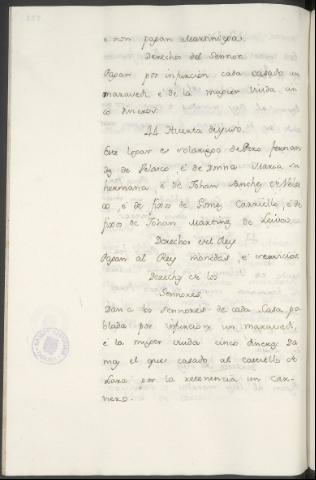 e non pagan Martiniega.
Derechos del Sennor
Pagan por infurcion cada casado un
maravedi, e de la mugier viuda, cin
co dineros.
Este logar es solariego de Pero Fernan
dez de Velasco, e de Donna Maria su
hermana, e de Johan Sanchez de Velas
co, e de fijos de Gomez Carriello, e de
fijos de Johan Martinez de Leiva.
Derechos del Rey
Pagan al Rey monedas, e servicios
Derechos de los
Sennores.
Dan a los sennores de cada casa po
blada por infurcion un maravedi,
e la mugier viuda cinco dineros: Da
mas el que es casado al castiello de
Lara por la retenencia un car-
nero.